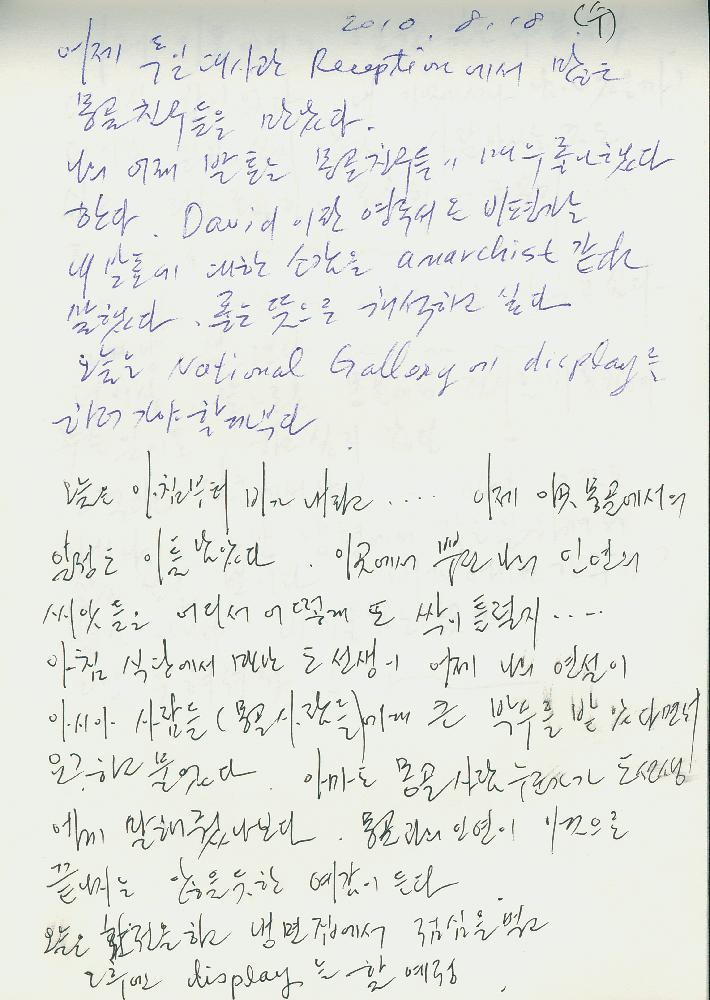 2010. 8. 18 (수)
어제 독일 대사관 Reception에서 많은
몽골친구들을 만났다.
나의 어제 발표는 몽골친구들이 매우 훌륭했다
한다. David 이란 영국서 온 비평가는
내 발표에 대한 소감을 anarchist 같다고
말했다. 좋은 뜻으로 해석하고 싶다
오늘은 National Gallery에 display를
하러 가야 할까부다
오늘은 아침부터 비가 내리고 .... 이제 이곳 몽골에서의
일정도 이틀 남았다. 이곳에서 뿌린 나의 인연의
씨앗들은 어디서 어떻게 또 싹이 틀런지 ....
아침 식당에서 만난 도 선생이 어제 나의 연설이
아시아 사람들(몽골사람들)에게 큰 박수를 받았다면서
요? 하고 물었다. 아마도 몽골사람 누군가가 도선생
에게 말해줬나보다. 몽골과의 인연이 이것으로
끝나지는 않을듯한 예감이 든다
오늘은 환전을하고 냉면집에서 점심을 먹고
오후에 display를 할 예정.